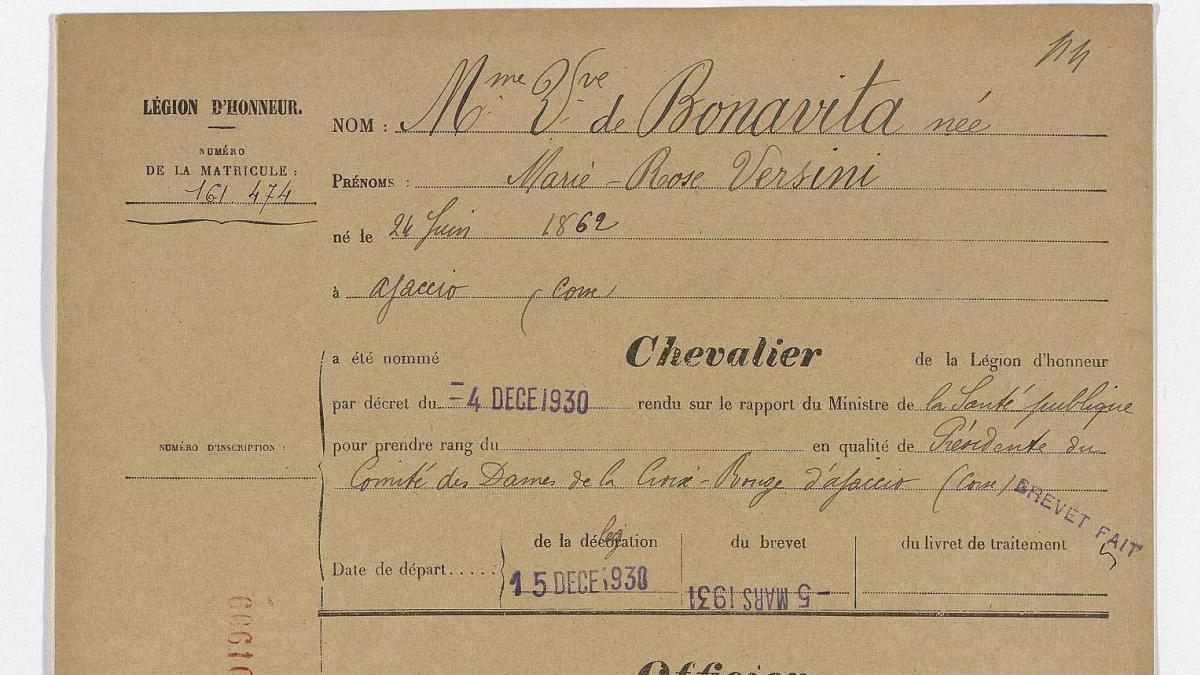 44
LÉGION D'HONNEUR.
NUMÉRO
DE LA MATRICULE :
161.474
NOM : Mme Vve de Bonavita née
PRÉNOMS : Marie-Rose Versini
né le 24 Juin 1862
à Ajaccio (Corse)
a été nommé Chevalier de la Légion d'honneur
par décret du -4 DECE 1930 rendu sur le rapport du Ministre de la Santé publique
NUMÉRO D'INSCRIPTION :
pour prendre rang du en qualité de Présidente du
Comité des Dames de la Croix-Rouge d'Ajaccio (Corse)
BREVET FAIT
de la décoration du brevet du livret de traitement
Date de départ..... 15 DECE 1930 -5 MARS 1931
Officier